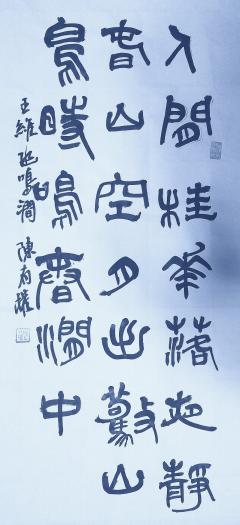 人閒桂華落夜靜
春山空月出驚山
鳥時鳴春澗中
王維鳥鳴澗 陳